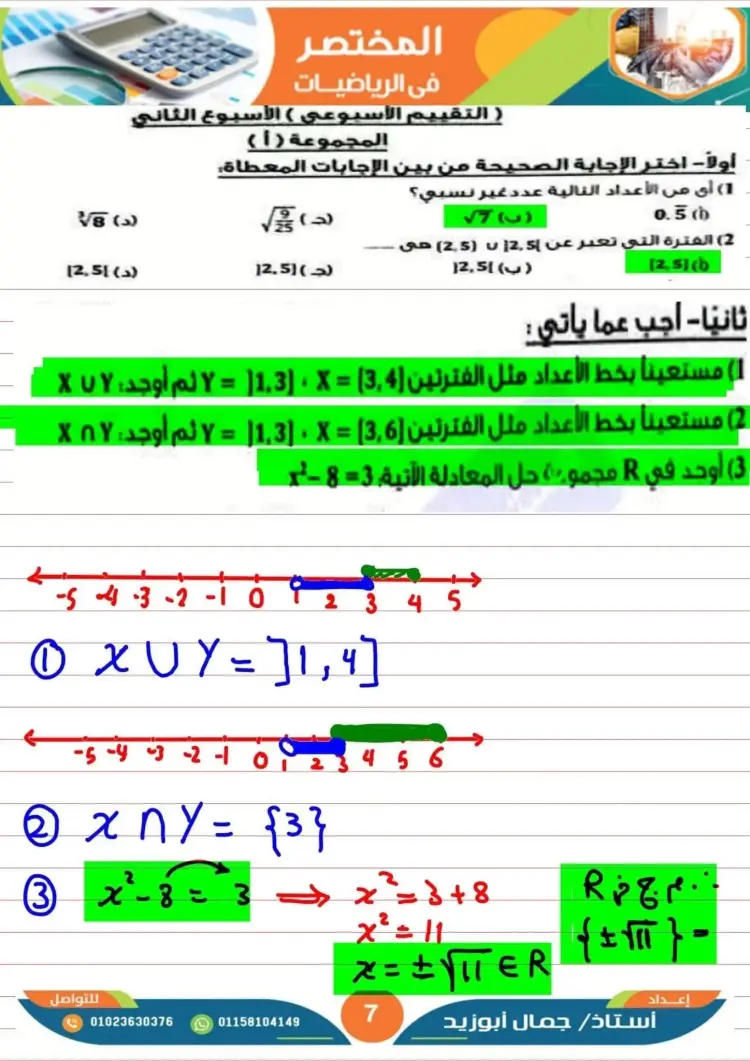 المختصر
فى الرياضيات
( التقييم الأسبوعي ) الأسبوع الثاني
المجموعة ( أ )
أولاً- اختر الإجابة الصحيحة من بين الإجابات المعطاة:
1) أي من الأعداد التالية عدد غير نسبي؟
أ) 0.5̅ (ب) √7 (جـ) √(9/25) (د) ∛8
2) الفترة التي تعبر عن ]2,5[ ∪ {2,5} هي ......
أ) [2,5] (ب) ]2,5[ (جـ) ]2,5] (د) [2,5[
ثانيًا- أجب عما يأتي:
1) مستعيناً بخط الأعداد مثل الفترتين X = [3,4] ، Y = ]1,3] ثم أوجد: X ∪ Y
2) مستعيناً بخط الأعداد مثل الفترتين X = [3,6] ، Y = ]1,3] ثم أوجد: X ∩ Y
3) أوجد في R مجموعة حل المعادلة الآتية: x² - 8 = 3
-5 -4 -3 -2 -1 0 1 2 3 4 5
① X ∪ Y = ]1,4]
-5 -4 -3 -2 -1 0 1 2 3 4 5 6
② X ∩ Y = {3}
③ x² - 8 = 3 ⟹ x² = 3 + 8
x² = 11
x = ±√11 ∈ R
∴ م.ح في R
= {±√11}
للتواصل
01023630376 01158104149
7
إعداد
أستاذ/ جمال أبوزيد